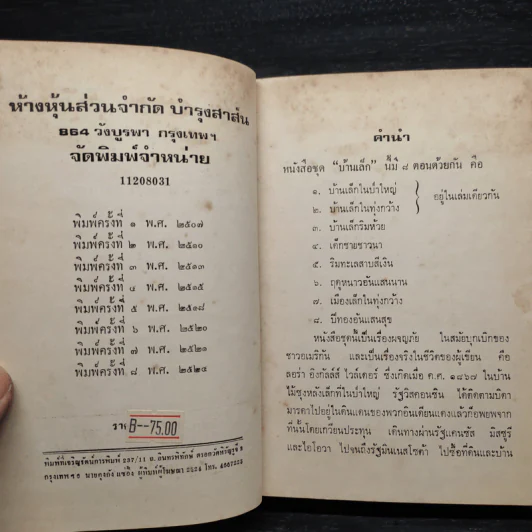 ห้างหุ้นส่วนจำกัด บำรุงสาส์น
864 วังบูรพา กรุงเทพฯ
จัดพิมพ์จำหน่าย
11208031
พิมพ์ครั้งที่ ๑ พ.ศ. ๒๕๐๗
พิมพ์ครั้งที่ ๒ พ.ศ. ๒๕๑๐
พิมพ์ครั้งที่ ๓ พ.ศ. ๒๕๑๓
พิมพ์ครั้งที่ ๔ พ.ศ. ๒๕๑๕
พิมพ์ครั้งที่ ๕ พ.ศ. ๒๕๑๘
พิมพ์ครั้งที่ ๖ พ.ศ. ๒๕๒๐
พิมพ์ครั้งที่ ๗ พ.ศ. ๒๕๒๑
พิมพ์ครั้งที่ ๘ พ.ศ. ๒๕๒๔
B--75.00
คำนำ
หนังสือชุด “บ้านเล็ก” นี้มี ๘ ตอนด้วยกัน คือ
๑. บ้านเล็กในป่าใหญ่
๒. บ้านเล็กในทุ่งกว้าง
อยู่ในเล่มเดียวกัน
๓. บ้านเล็กริมห้วย
๔. เด็กชายชาวนา
๕. ริมทะเลสาบสีเงิน
๖. ฤดูหนาวอันแสนนาน
๗. เมืองเล็กในทุ่งกว้าง
๘. ปีทองอันแสนสุข
หนังสือชุดนี้เป็นเรื่องผจญภัย ในสมัยบุกเบิกของ
ชาวอเมริกัน และเป็นเรื่องจริงในชีวิตของผู้เขียน คือ
ลอร่า อิงกัลล์ส์ ไวล์เดอร์ ซึ่งเกิดเมื่อ ค.ศ. ๑๘๖๗ ในบ้าน
ไม้ซุงหลังเล็กที่ในป่าใหญ่ รัฐวิสคอนซิน ได้ติดตามบิดา
มารดาไปอยู่ในดินแดนของพวกอินเดียนแดงแล้วก็อพยพจาก
ที่นั้นโดยเกวียนประทุน เดินทางผ่านรัฐแคนซัส มิสซูรี
และไอโอวา ไปจนถึงรัฐมินเนสโซต้า ไปซื้อที่ดินและบ้าน